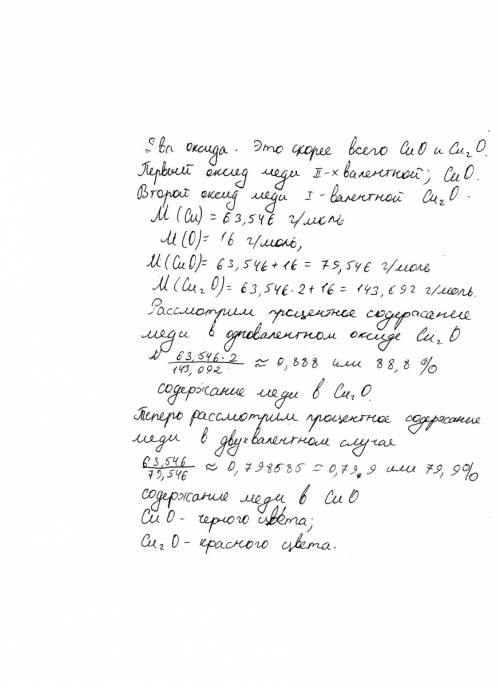 Два оксида. Это скорее всего CuO и Cu₂O.
Первый оксид меди II-х валентной; CuO.
Второй оксид меди I-валентной Cu₂O.
M(Cu) = 63,546 г/моль
M(O) = 16 г/моль,
M(CuO) = 63,546+16 = 79,546 г/моль
M(Cu₂O) = 63,546·2+16 = 143,092 г/моль.
Рассмотрим процентное содержание
меди в одновалентном оксиде Cu₂O
63,546·2/143,092 ≈ 0,888 или 88,8%
содержание меди в Cu₂O.
Теперь рассмотрим процентное содержание
меди в двухвалентном случае
63,546/79,546 ≈ 0,798585 = 0,79,9 или 79,9%
содержание меди в CuO
CuO - черного цвета;
Cu₂O - красного цвета.